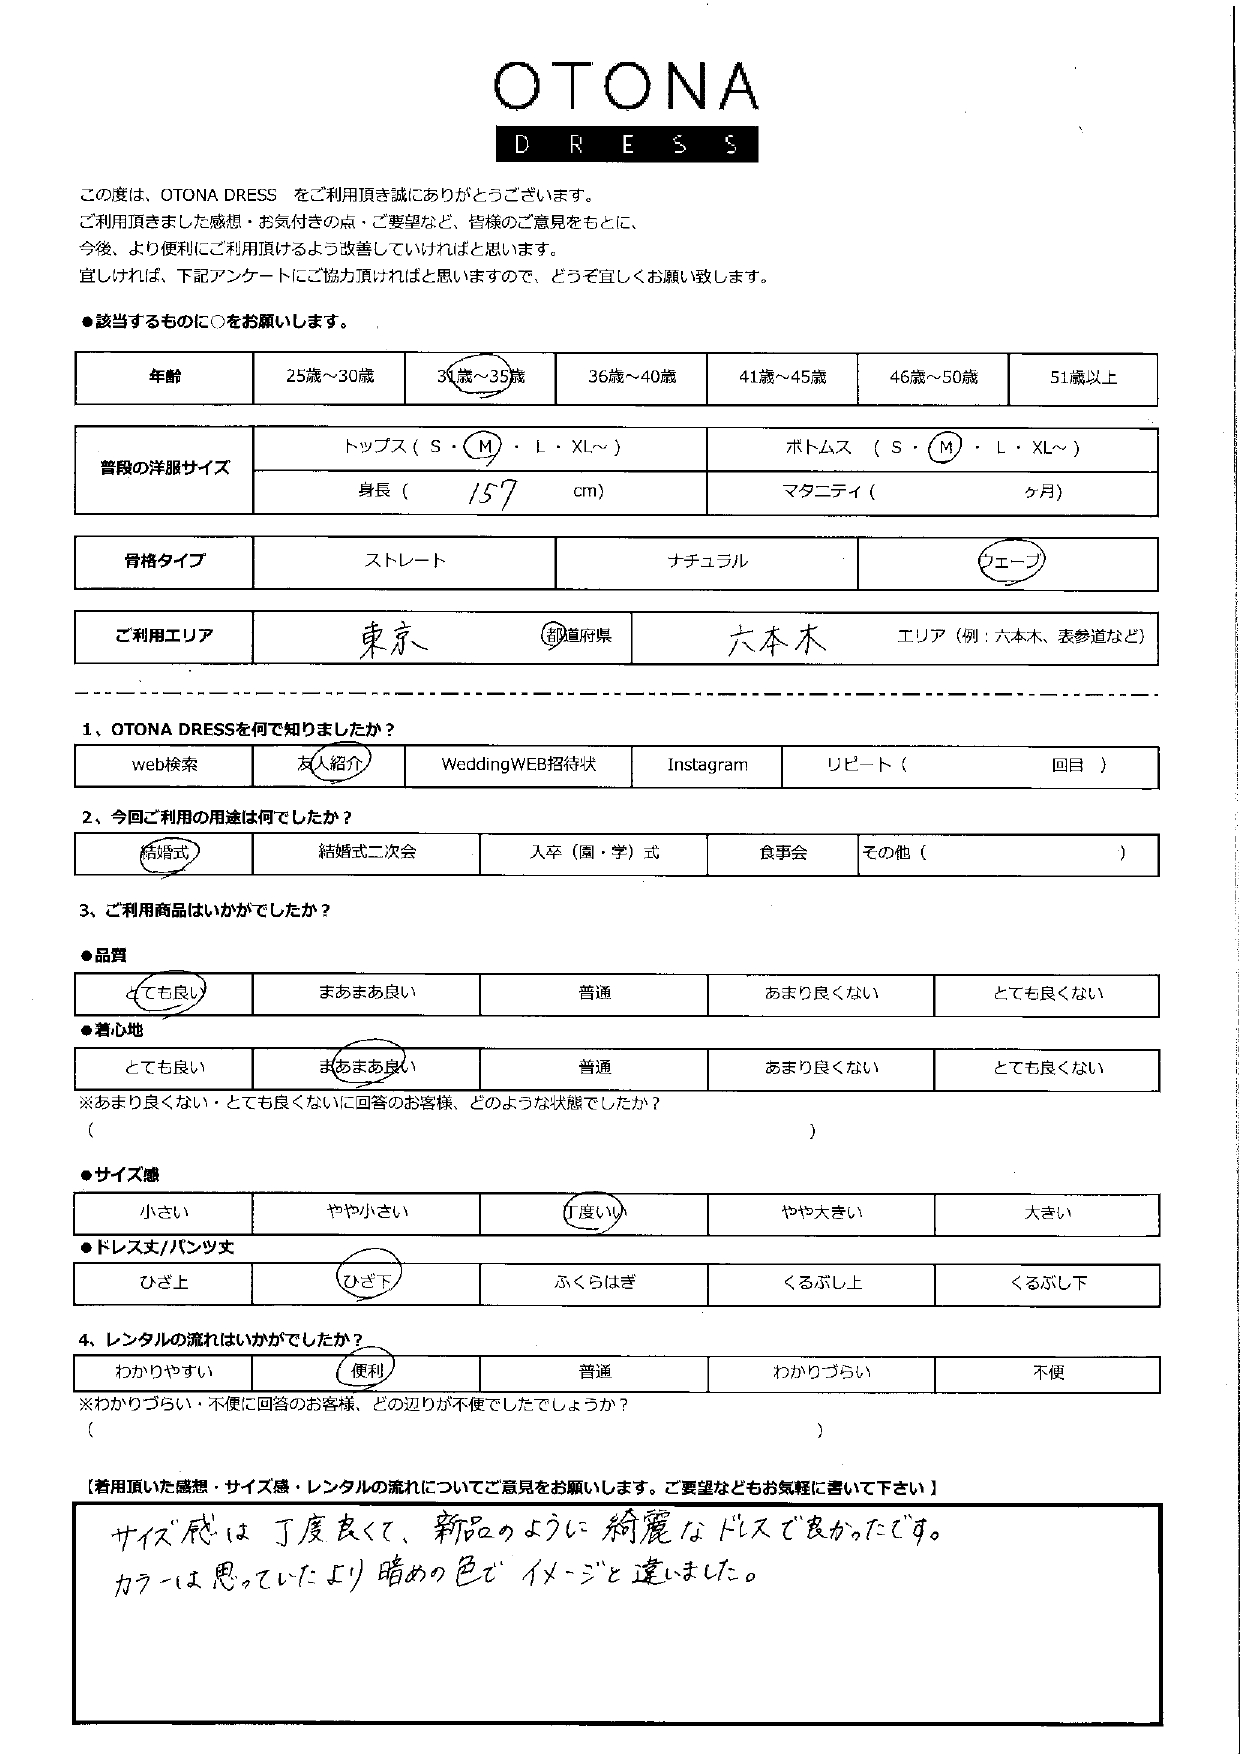 OTONA
DRESS
この度は、OTONA DRESS をご利用頂き誠にありがとうございます。
ご利用頂きました感想・お気付きの点・ご要望など、皆様のご意見をもとに、
今後、より便利にご利用頂けるよう改善していければと思います。
宜しければ、下記アンケートにご協力頂ければと思いますので、どうぞ宜しくお願い致します。
●該当するものに○をお願いします。
年齢 25歳～30歳 31歳～35歳 36歳～40歳 41歳～45歳 46歳～50歳 51歳以上
普段の洋服サイズ トップス ( S ・ M ・ L ・ XL～ ) ボトムス ( S ・ M ・ L ・ XL～ )
身長 ( 157 cm) マタニティ ( ヶ月)
骨格タイプ ストレート ナチュラル ウェーブ
ご利用エリア 東京 都道府県 六本木 エリア（例：六本木、表参道など）
1、OTONA DRESSを何で知りましたか？
web検索 友人紹介 WeddingWEB招待状 Instagram リピート ( 回目 )
2、今回ご利用の用途は何でしたか？
結婚式 結婚式二次会 入卒（園・学）式 食事会 その他 ( )
3、ご利用商品はいかがでしたか？
●品質
とても良い まあまあ良い 普通 あまり良くない とても良くない
●着心地
とても良い まあまあ良い 普通 あまり良くない とても良くない
※あまり良くない・とても良くないに回答のお客様、どのような状態でしたか？
( )
●サイズ感
小さい やや小さい 丁度いい やや大きい 大きい
●ドレス丈/パンツ丈
ひざ上 ひざ下 ふくらはぎ くるぶし上 くるぶし下
4、レンタルの流れはいかがでしたか？
わかりやすい 便利 普通 わかりづらい 不便
※わかりづらい・不便に回答のお客様、どの辺りが不便でしたでしょうか？
( )
【着用頂いた感想・サイズ感・レンタルの流れについてご意見をお願いします。ご要望などもお気軽に書いて下さい】
サイズ感は丁度良くて、新品のように綺麗なドレスで良かったです。
カラーは思っていたより暗めの色でイメージと違いました。